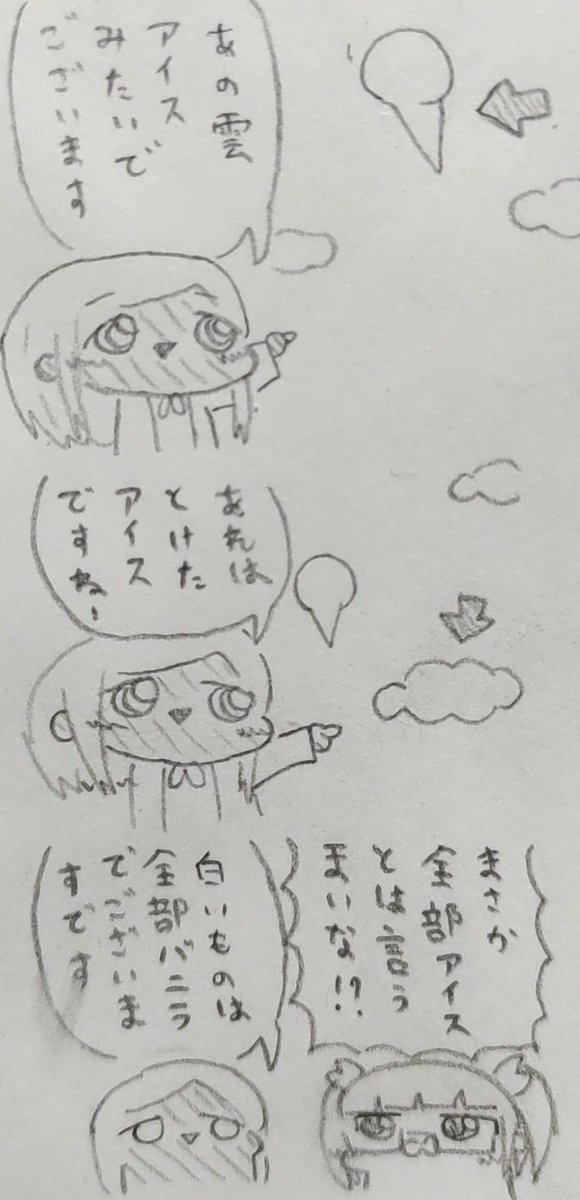 あの雲
アイス
みたいで
ございます
あれは
とけた
アイス
ですねー
まさか
全部アイス
とは言う
まいな!?
白いものは
全部バニラ
でございま
すです